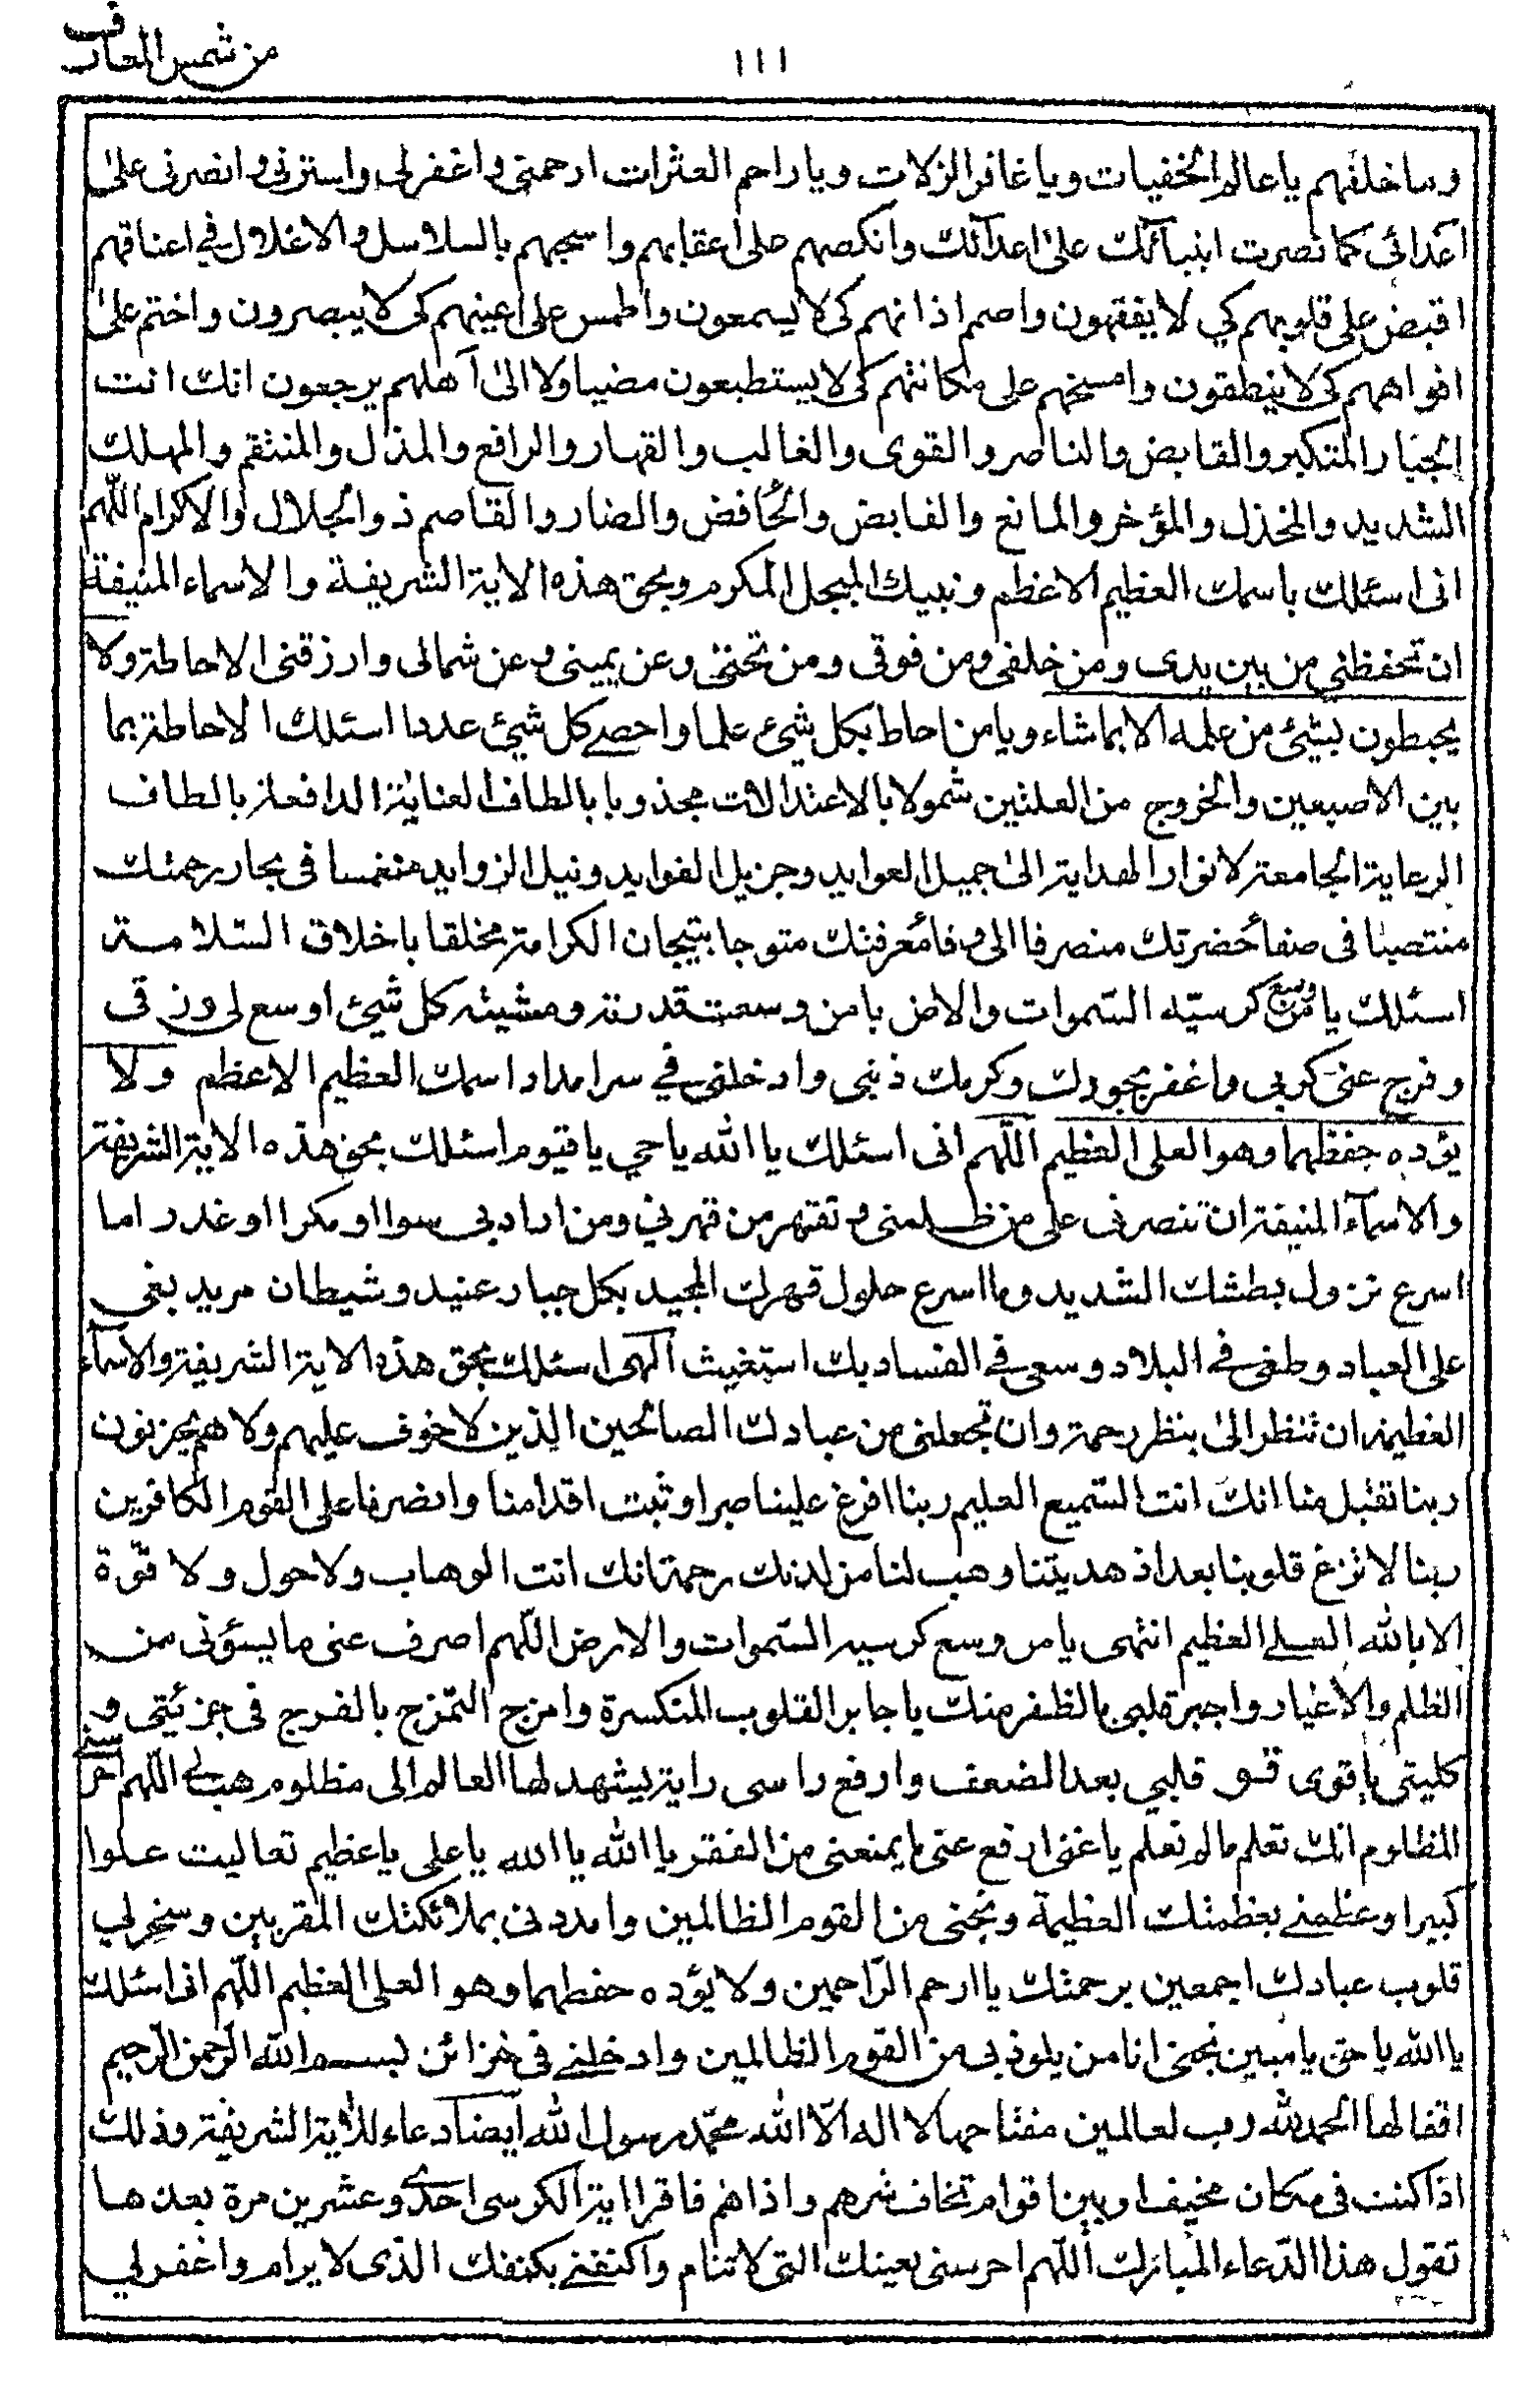 من شمس المعارف
١١١
وما خلفهم يا عالم الخفيات ويا غافر الزلات ويا راحم العثرات ارحمني واغفر لي واسترني وانصرني على
اعدائي كما نصرت انبيآئك على اعدآئك وانكصهم على اعقابهم واسجبهم بالسلاسل والاغلال في اعناقهم
اقبض على قلوبهم كي لا يفقهون واصم اذانهم كى لا يسمعون واطمس على اعينهم كى لا يبصرون واختم على
افواههم كى لا ينطقون وامسخهم على مكانتهم كى لا يستطيعون مضيا ولا الى آهلهم يرجعون انك انت
الجبار المتكبر والقابض والناصر والقوى والغالب والقهار والرافع والمذل والمنتقم والمهلك
الشديد والمخذل والمؤخر والمانع والقابض والخافض والضار والقاصم ذو الجلال والاكرام اللهم
انى اسئلك باسمك العظيم الاعظم ونبيك المبجل المكرم وبحق هذه الاية الشريفة والاسماء المنيفة
ان تحفظني من بين يدى ومن خلفى ومن فوقى ومن تحتى وعن يمينى وعن شمالى وارزقنى الاحاطة ولا
يحيطون بشئ من علمه الا بماشاء ويا من احاط بكل شئ علما واحصى كل شئ عددا اسئلك الاحاطة بما
بين الاصبعين والخروج من العلتين شمولا بالاعتدالات مجذوبا بالطاف العناية الدافعة بالطاف
الرعاية الجامعة لانوار الهداية الى جميل العوايد وجزيل الفوايد ونيل الزوايد منغمسا فى بحار رحمتك
منتصبا فى صفآ حضرتك منصرفا الى وفآ معرفتك متوجا بتيجان الكرامة مخلقا باخلاق السلامة
اسئلك يا من وسع كرسيه السموات والارض يا من وسعت قدرته ومشيئته كل شئ اوسع لى رزقى
وفرج عنى كربى واغفر بجودك وكرمك ذنبى وادخلنى في سر امداد اسمك العظيم الاعظم ولا
يؤده حفظهما وهو العلى العظيم اللهم انى اسئلك يا الله يا حي يا قيوم اسئلك بحق هذه الاية الشريفة
والاسمآء المنيفة ان تنصرنى على من ظلمنى وتقهر من قهرني ومن اراد بى سوا او مكرا او غدرا ما
اسرع نزول بطشك الشديد وما اسرع حلول قهرك المجيد بكل جبار عنيد وشيطان مريد بغى
على العباد وطغى في البلاد وسعى في الفساد بك استغيث الهى اسئلك بحق هذه الاية الشريفة والاسمآء
العظيمه ان تنظر الى بنظر رحمة وان تجعلنى من عبادك الصالحين الذين لا خوف عليهم ولا هم يحزنون
ربنا تقبل منا انك انت السميع العليم ربنا افرغ علينا صبرا وثبت اقدامنا وانصرنا على القوم الكافرين
ربنا لا تزغ قلوبنا بعد اذ هديتنا وهب لنا من لدنك رحمة انك انت الوهاب ولا حول ولا قوة
الا بالله العلى العظيم انتهى يا من وسع كرسيه السموات والارض اللهم اصرف عنى ما يسؤنى من
الظلم والاغيار واجبر قلبى بالظفر منك يا جابر القلوب المنكسرة وامزج التمزج بالفرج فى جزئيتى و
كليتى يا قوى قو قلبي بعد الضعف وارفع راسى راية يشهد لها العالم الى مظلوم هب لى اللهم
المظلوم انك تعلم مالم نعلم يا غنى ارفع عنى ما يمنعنى من الفقر يا الله يا الله يا على يا عظيم تعاليت علوا
كبيرا وعظمنى بعظمتك العظيمة ونجنى من القوم الظالمين وامددنى بملائكتك المقربين وسخر لى
قلوب عبادك اجمعين برحمتك يا ارحم الراحمين ولا يؤده حفظهما وهو العلى العظيم اللهم انى اسئلك
يا الله يا حق يا مبين نجنى انا من يلوذ بى من القوم الظالمين وادخلنى فى خزائن بسم الله الرحمن الرحيم
اقفالها الحمد لله رب لعالمين مفتاحها لا اله الا الله محمد رسول الله ايضا دعاء للاية الشريفة وذلك
اذا كنت فى مكان مخيف او بين اقوام تخاف شرهم واذاهم فاقرا اية الكرسى احدى وعشرين مرة بعدها
تقول هذا الدعاء المبارك اللهم احرسنى بعينك التى لا تنام واكنفنى بكنفك الذى لا يرام واغفر لي